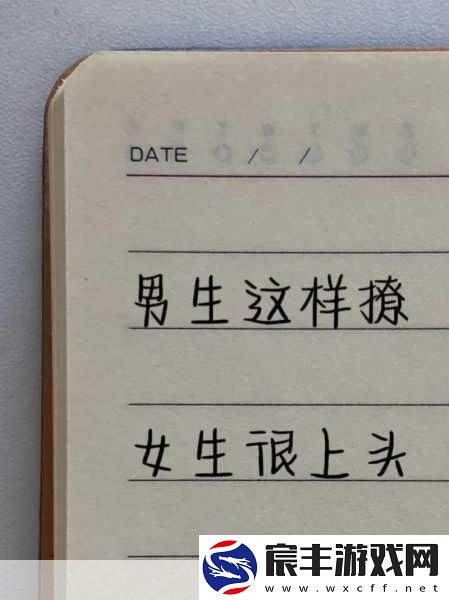 DATE / /
男生这样撩
女生很上头
宸丰游戏网
www.wxcff.net